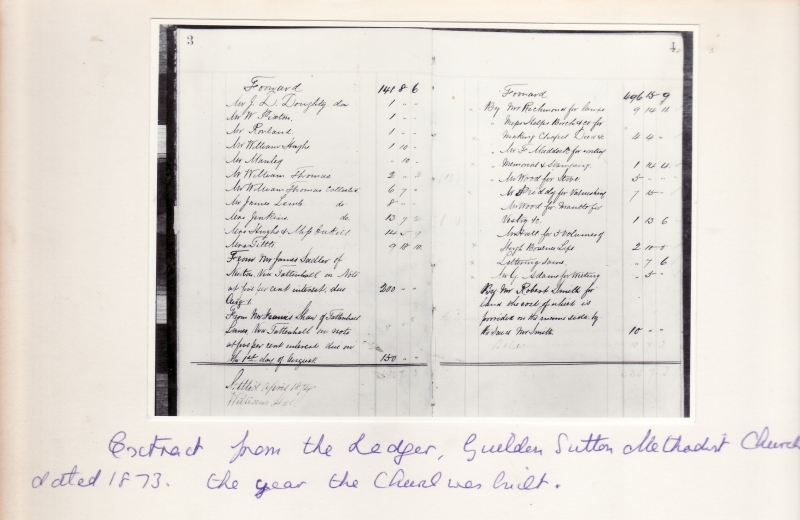 3
Forward 141 8 6
Mr J. D. Doughty do 1 - -
Mr W. 1 - -
Mr Rowland 1 - -
Mr William Hughs 1 10 -
Mr Manley - 10 -
Mr William Thomas 2 -
Mr William Thomas Collected 6 7 -
Mr James Lamb do 8 - -
Miss Jenkins do 13 7 2
Miss Hughs & Miss 14 5
9 18
From Mr James Sadler of
Newton, Nr Tattenhall on Note
at five per cent interest, due
Aug 1. 200 - -
From Mr Francis Shaw of Tattenhall
Lanes, Nr Tattenhall on note
at five per cent interest due on
the 1st day of August 150 - -
Settled April 1874
William
4
Forward 496 15 9
By Mr Richmond for 9 14
" Mess Helps Birch & Co for
making Chapel Deeds 4 4 -
" Mr F. Maddock for writing
" Memorial & 1 14 4
" Mr Wood for Stove 5 - -
" Mr Priddy for Varnishing 7 15 -
" Mr Wood for for
Vestry &c. 1 13 6
" Mr Hall for 3 Volumes of
Hugh Life 2 10 0
Lettering same - 7 6
" Mr G. Adams for Writing - 5 -
By Mr Robert Smith for
land the cost of which is
provided on the side by
the said Mr Smith 10 - -
Extract from the Ledger, Guilden Sutton Methodist Church
dated 1873. the year the Church was built.